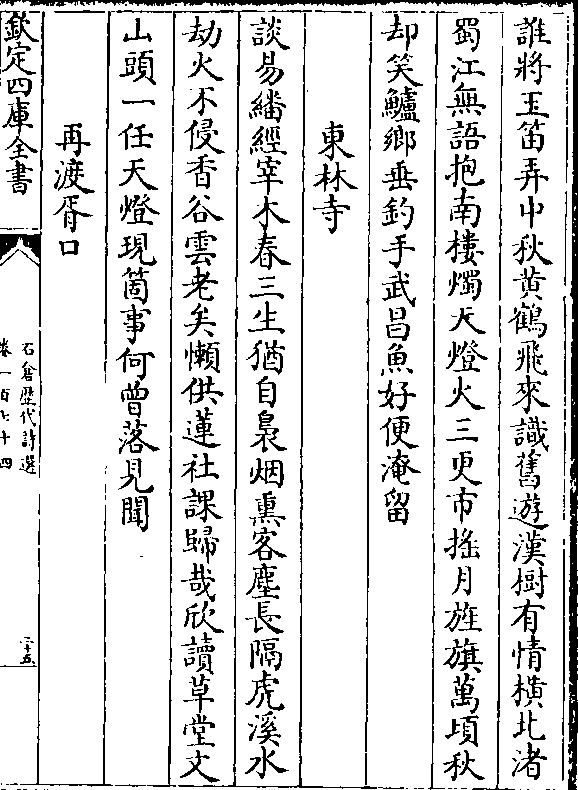 誰將玉笛弄中秋黄鶴飛來識舊遊漢樹有情橫北渚
蜀江無語抱南樓燭天燈火三更市搖月旌旗萬頃秋
却笑鱸鄉垂釣手武昌魚好便淹留
東林寺
談易繙經宰木春三生猶自裊烟熏客塵長隔虎溪水
劫火不侵香谷雲老矣懶供蓮社課歸哉欣讀草堂文
山頭一任天燈現箇事何曾落見聞
再渡胥口
欽定四庫全書
石倉歴代詩選
卷一百七十四
二十五